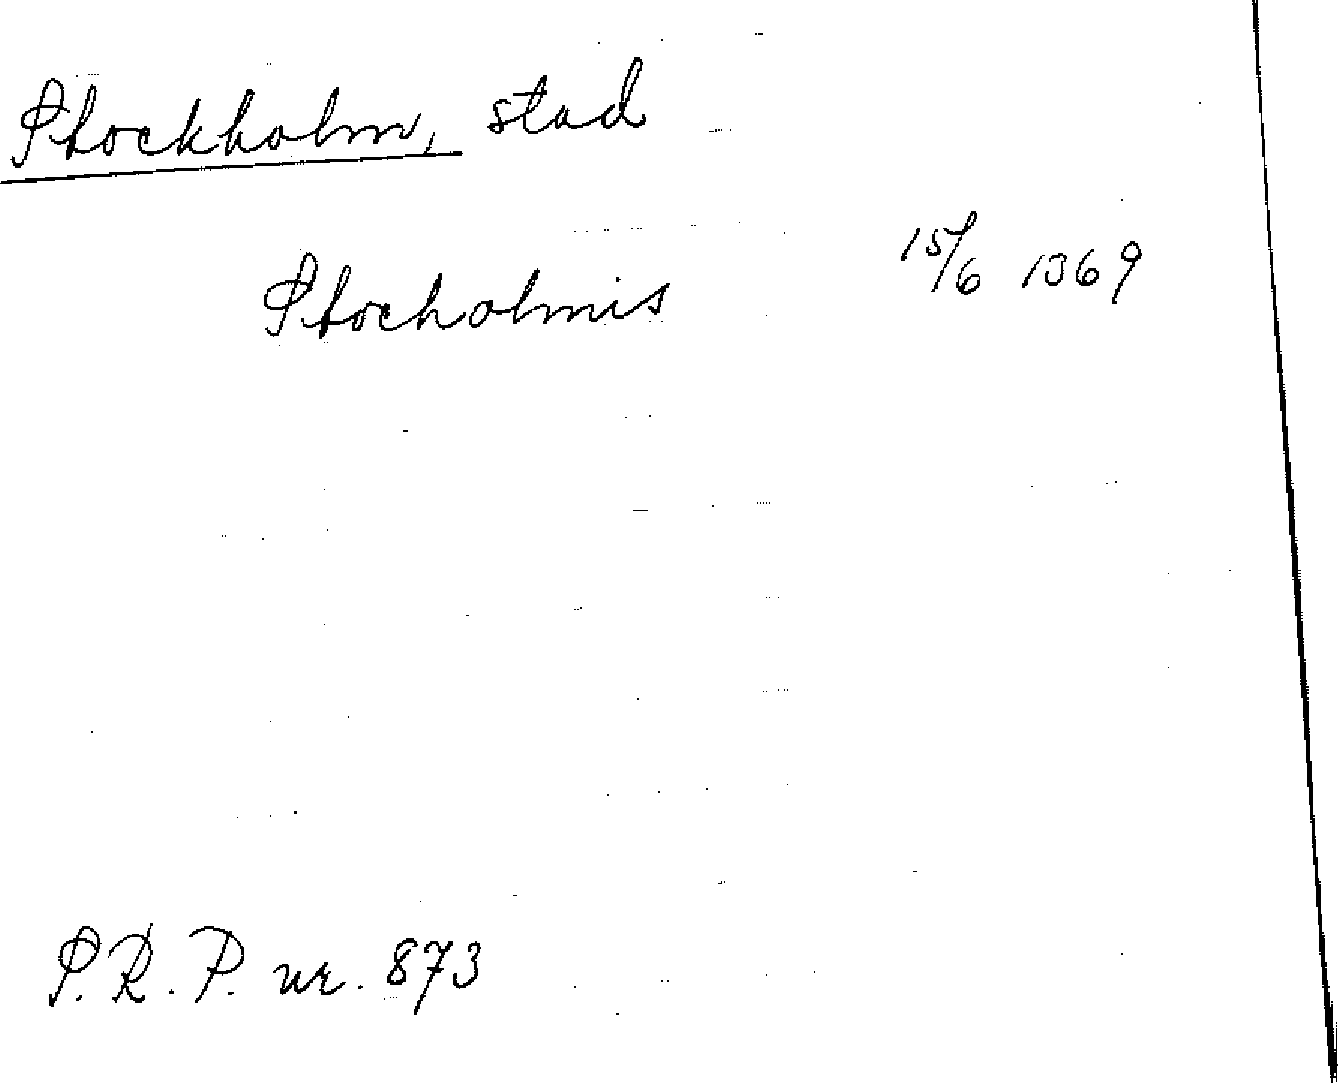 Stockholm, stad
Stocholmis 15/6 1369
S.R.P. nr. 873